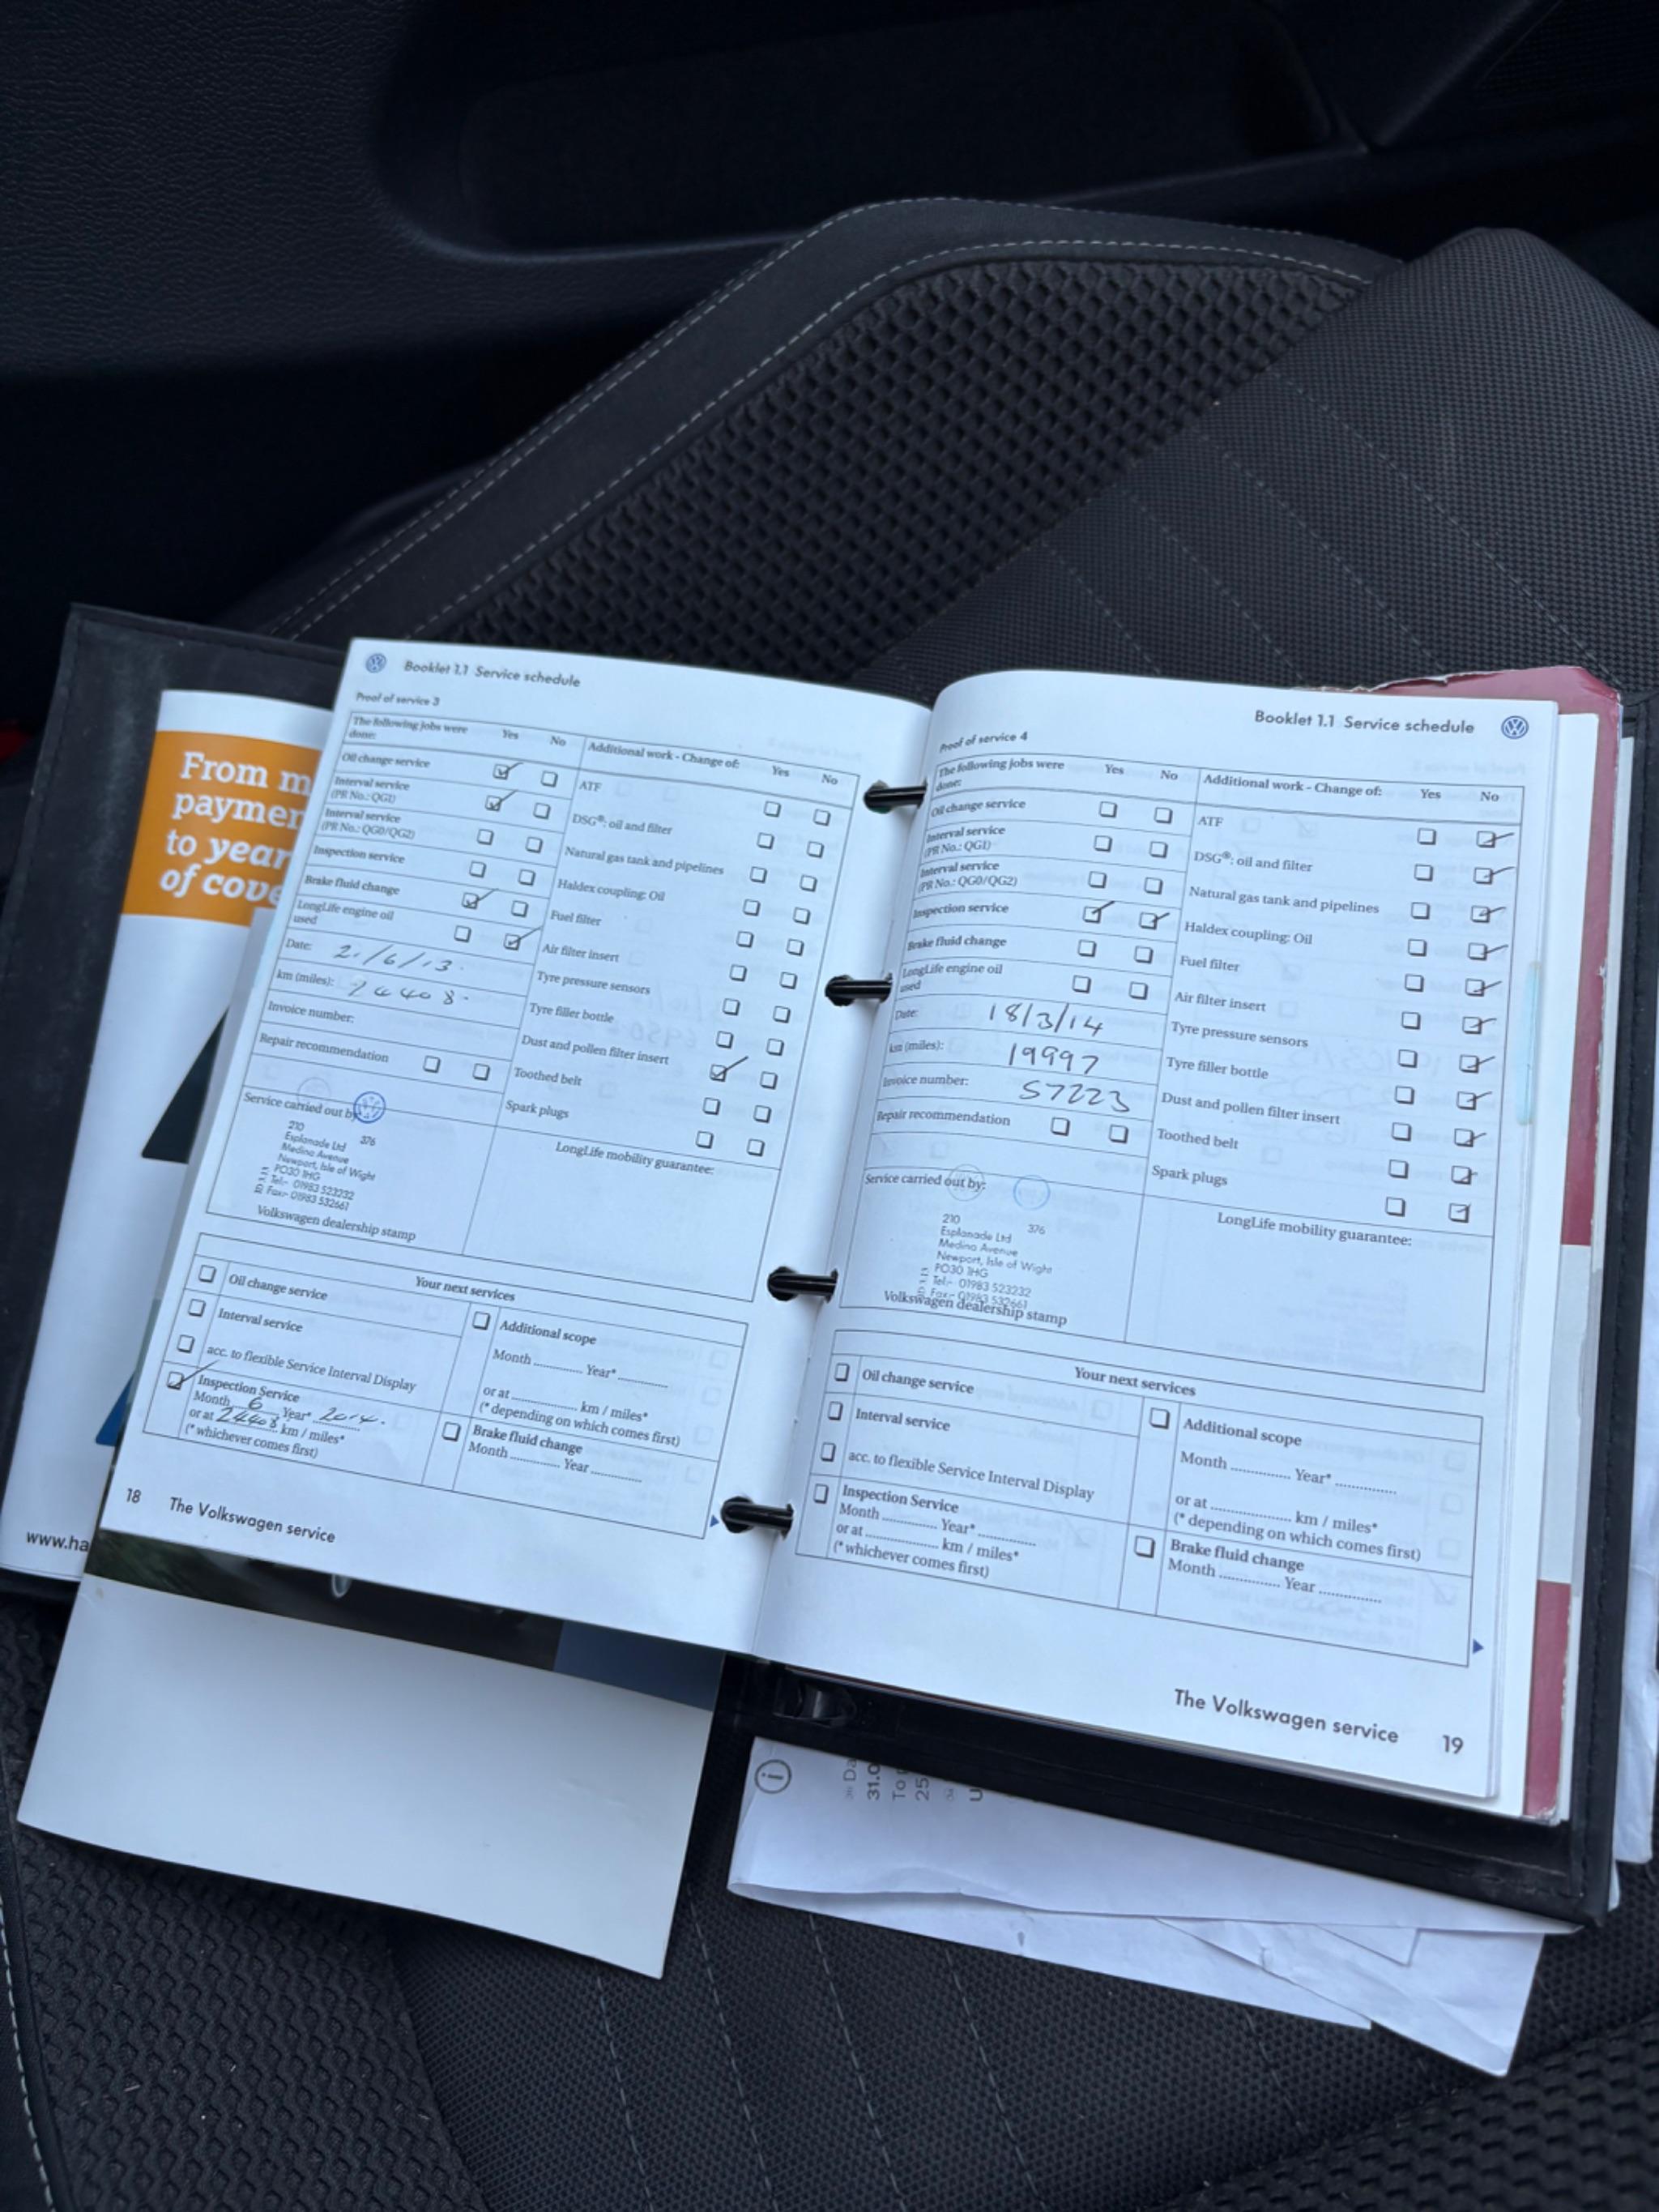 From m
paymen
to year
of cove
www.ha
Booklet 1.1 Service schedule
Proof of service 3
The following jobs were done: Yes No
Oil change service
Interval service
(PR No.: QG1)
Interval service
(PR No.: QG0/QG2)
Inspection service
Brake fluid change
LongLife engine oil
used
Date:
km (miles):
Invoice number:
Repair recommendation
Additional work - Change of: Yes No
ATF
DSG®: oil and filter
Natural gas tank and pipelines
Haldex coupling: Oil
Fuel filter
Air filter insert
Tyre pressure sensors
Tyre filler bottle
Dust and pollen filter insert
Toothed belt
Spark plugs
Service carried out by:
210 376
Esplanade Ltd
Medina Avenue
Newport, Isle of Wight
PO30 1HG
Tel:- 01983 523232
Fax:- 01983 532661
Volkswagen dealership stamp
LongLife mobility guarantee:
Your next services
Oil change service
Interval service
acc. to flexible Service Interval Display
Inspection Service
Month 6 Year* 2014.
or at 24408 km / miles*
(* whichever comes first)
Additional scope
Month ............ Year* ............
or at ................ km / miles*
(* depending on which comes first)
Brake fluid change
Month ............ Year ............
18 The Volkswagen service
Booklet 1.1 Service schedule
Proof of service 4
The following jobs were
done: Yes No
Oil change service
Interval service
(PR No.: QG1)
Interval service
(PR No.: QG0/QG2)
Inspection service
Brake fluid change
LongLife engine oil
used
Date: 18/3/14
km (miles): 19997
Invoice number: 57223
Repair recommendation
Additional work - Change of: Yes No
ATF
DSG®: oil and filter
Natural gas tank and pipelines
Haldex coupling: Oil
Fuel filter
Air filter insert
Tyre pressure sensors
Tyre filler bottle
Dust and pollen filter insert
Toothed belt
Spark plugs
Service carried out by:
210 376
Esplanade Ltd
Medina Avenue
Newport, Isle of Wight
PO30 1HG
Tel:- 01983 523232
Fax:- 01983 532661
Volkswagen dealership stamp
LongLife mobility guarantee:
Your next services
Oil change service
Interval service
acc. to flexible Service Interval Display
Inspection Service
Month ............ Year* ............
or at ................ km / miles*
(* whichever comes first)
Additional scope
Month ............ Year* ............
or at ................ km / miles*
(* depending on which comes first)
Brake fluid change
Month ............ Year ............
The Volkswagen service 19